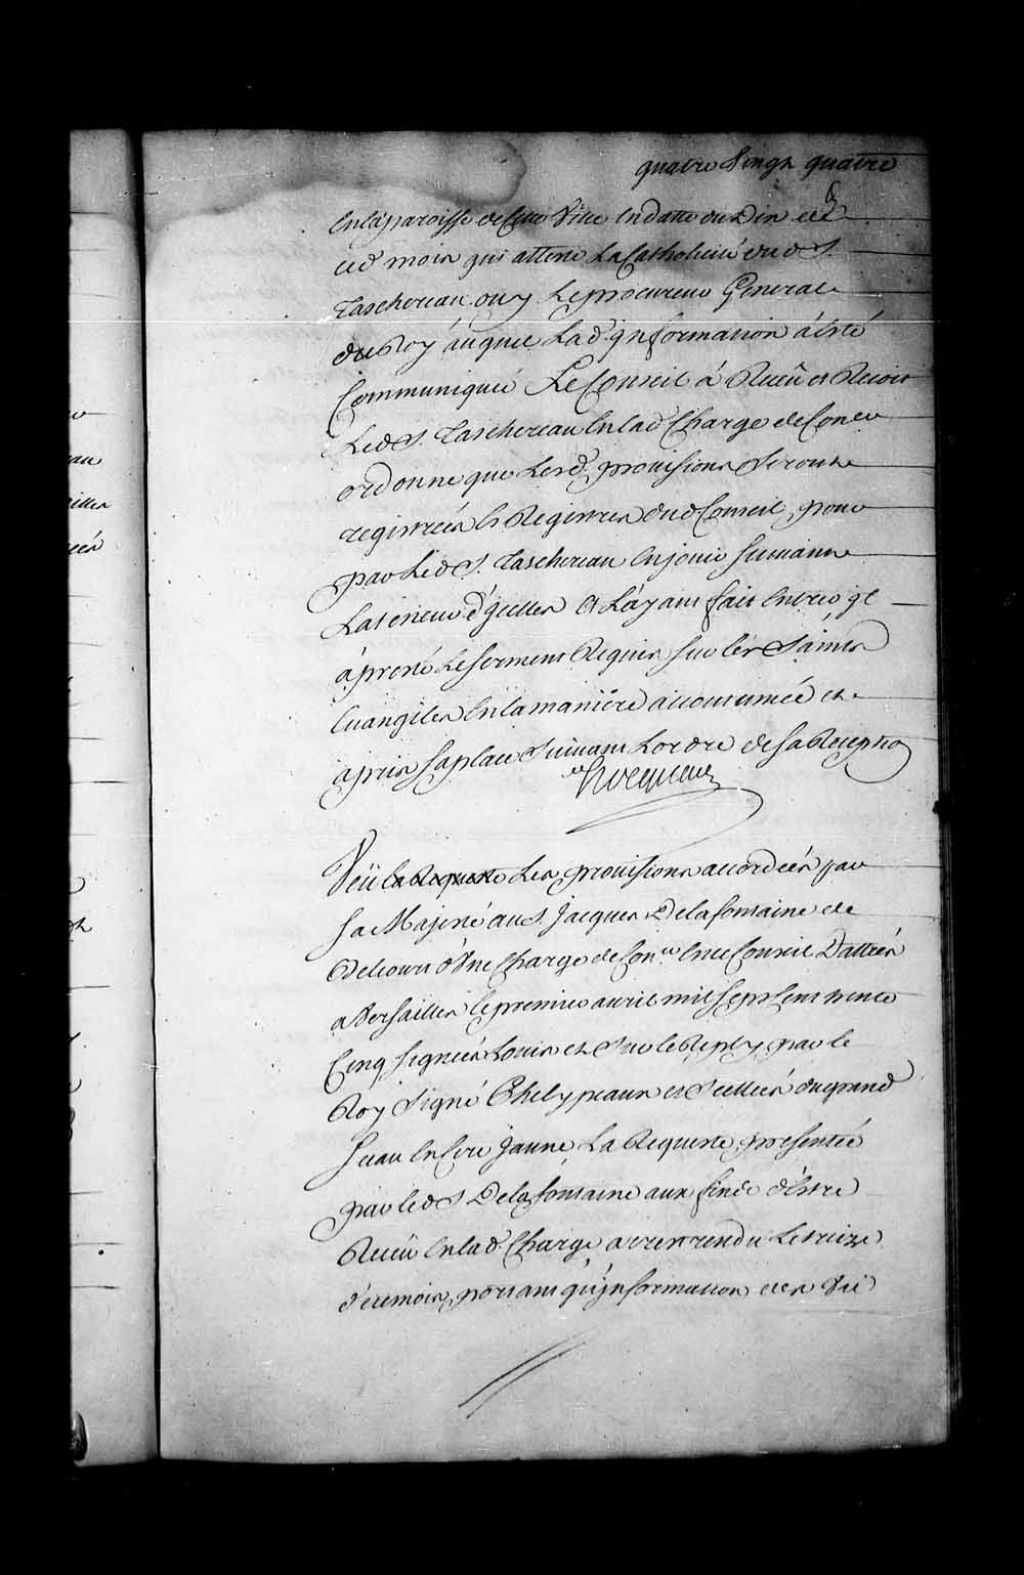 quatre Vingt quatre
En la paroisse de Cette Ville En datte du Dix
dud mois qui atteste La Catholicité dud S.
Taschereau ouy Le procureur General
du Roy áuquel Lad. jnformation á Esté
Communiqué Le Conseil á Reçeu et Reçoit
Led S. Taschereau En lad Charge de Coner
ordonne que Lesd. provisions Seront
registrées Es Registres dud Conseil, pour
par Led S. Taschereau En joüir Suivant
La teneur d'jcelles Et L'ayant fait Entrer jl
á presté Le serment Requis sur les Saints
Evangiles En la maniére accoutumée et
á pris sa place Suivant Lordre de sa Reception
Hocquart
Veu la Requeste Les provisions accordées par
Sa Majesté au S. Jacques Delafontaine de
Belcour d'Vne Charge de Coner. En ce Conseil Dattées
a Versailles le premier avril mil sept Cent trente
Cinq signées Louis et Sur le Reply par le
Roy Signé Phelypeaux et Scellées du grand
Sceau En Cire jaune, La Requeste presentée
par led S Delafontaine aux fins d'Estre
Reçeu En lad. Charge, arrest rendu Le treize
de ce mois, portant qu'jnformation des Vie